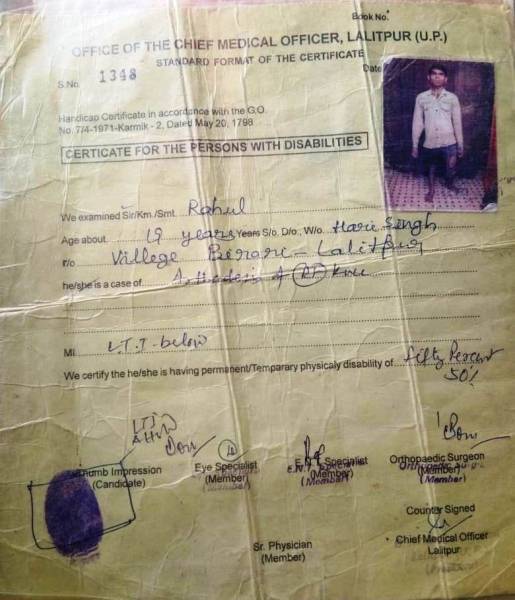 Book No.
OFFICE OF THE CHIEF MEDICAL OFFICER, LALITPUR (U.P.)
STANDARD FORMAT OF THE CERTIFICATE
S.No. 1348
Date
Handicap Certificate in accordance with the G.O.
No. 7/4-1971-Karmik - 2, Dated May 20, 1798
CERTICATE FOR THE PERSONS WITH DISABILITIES
We examined Sir/Km./Smt. Rahul
Age about 19 years Years S/o. D/o., W/o. Hari Singh
r/o Villege - Lalitpur
he/she is a case of of Knee
MI L.T.I - below
We certify the he/she is having permanent/Temparary physicaly disability of fifty Percent
50%
LTI
Thumb Impression
(Candidate)
Eye Specialist
(Member)
(Member)
E.N.T. Specialist
(Member)
Orthopaedic Surgeon
(Member)
(Member)
Counter Signed
Chief Medical Officer
Lalitpur
Sr. Physician
(Member)